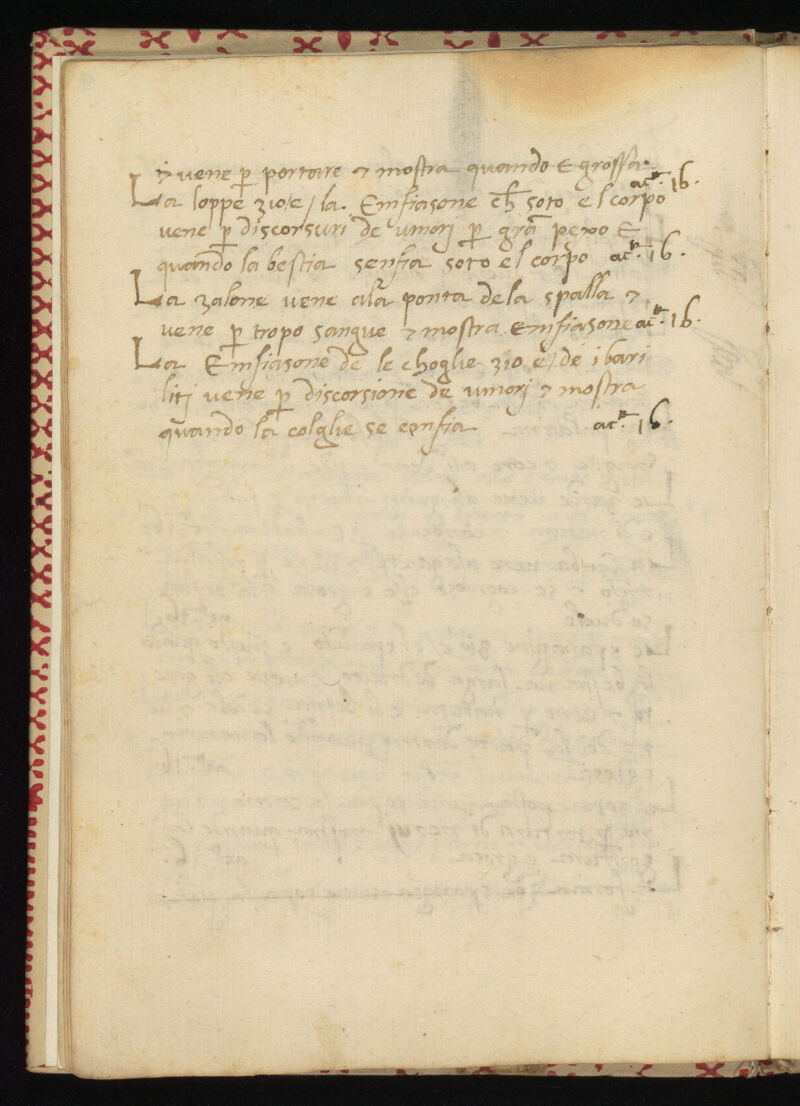 ⁊ vene p̲ portare ⁊ mostra quando E grossa.
ac̃. 16.
La loppe zio e / la. Emfiasone ch̃ soto el corpo
vene p̲ discorsuri de vmorj p̲ grã pexo E
quando la bestia senfia soto el corpo ac̃. 16.
La zalone vene ala ponta dela spalla ⁊
vene p̲ tropo sangue ⁊ mostra Emfiasone ac̃. 16.
La Emfiasone de le choglie zio è / de i bari
litj vene p̲ discorsione de vmorj ⁊ mostra
quando la colglie se enfia ac̃. 16.